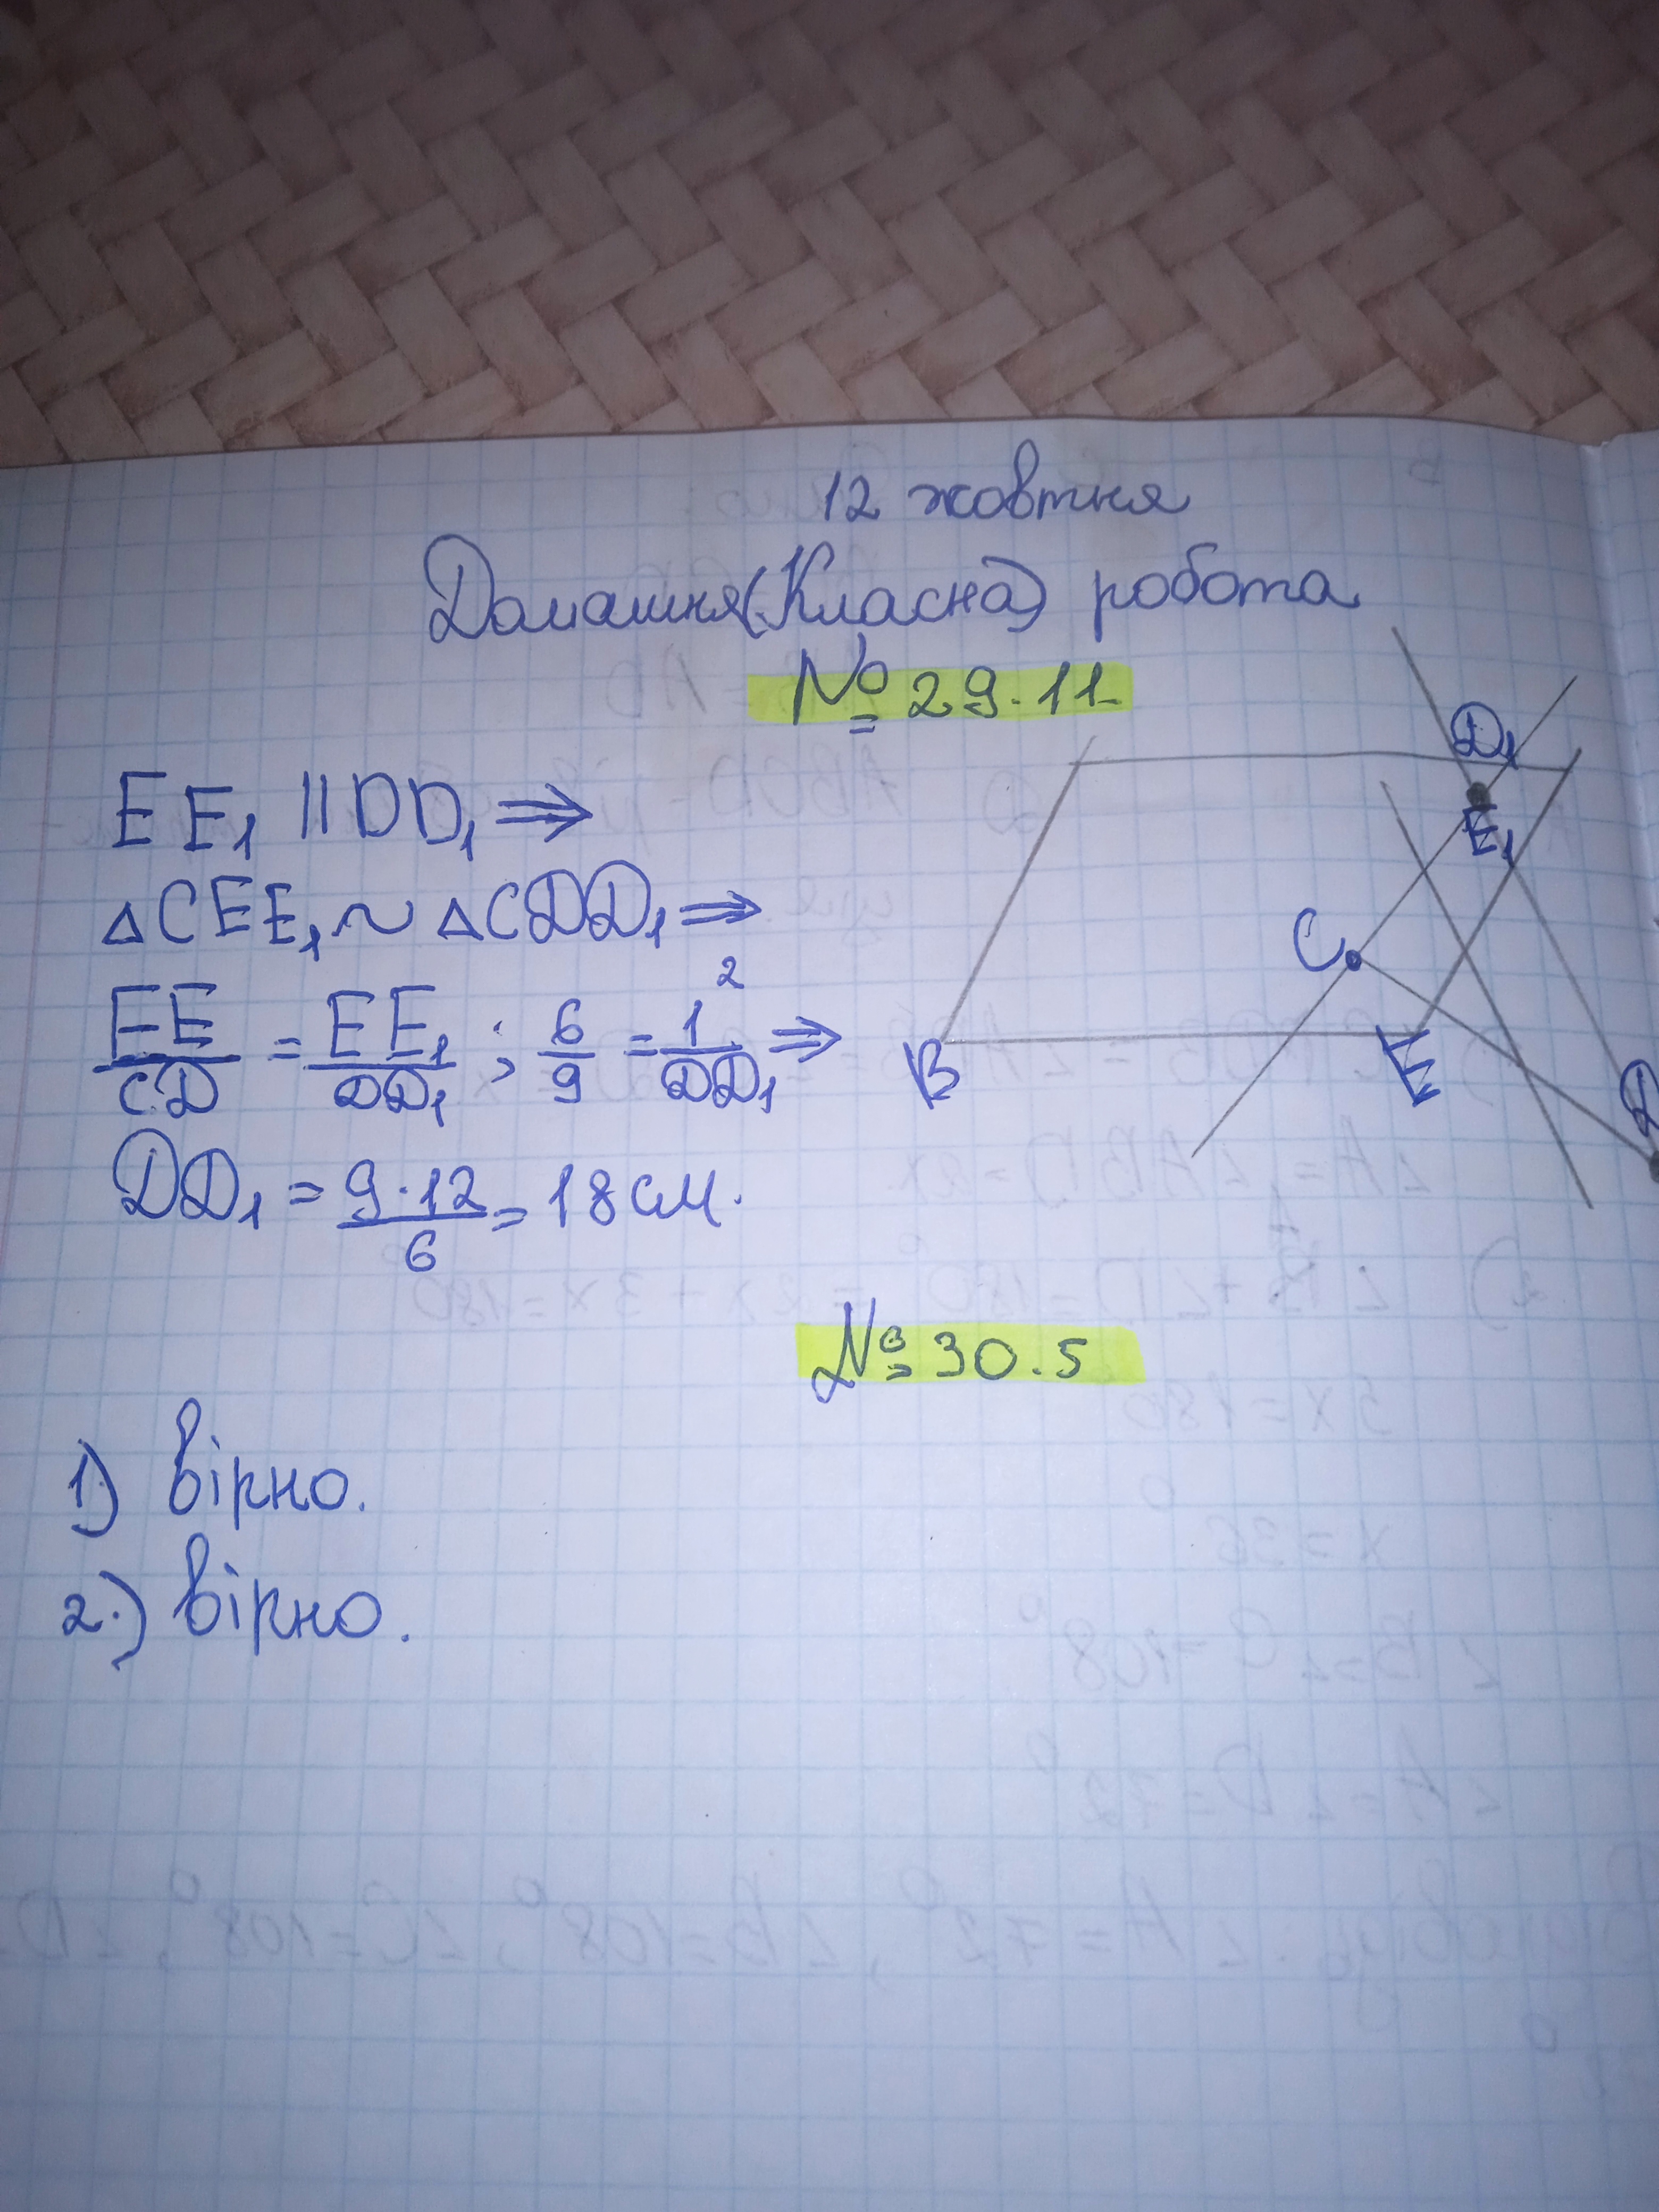 12 жовтня
Домашня(Класна) робота
№ 29.11.
EE₁ || DD₁ ⇒
△CEE₁ ~ △CDD₁ ⇒
EE/CD = EE₁/DD₁ ; 6/9 = 12/DD₁ ⇒
DD₁ = 9·12/6 = 18 см.
D₁
E₁
C
B
E
D
№ 30.5
1) вірно.
2.) вірно.